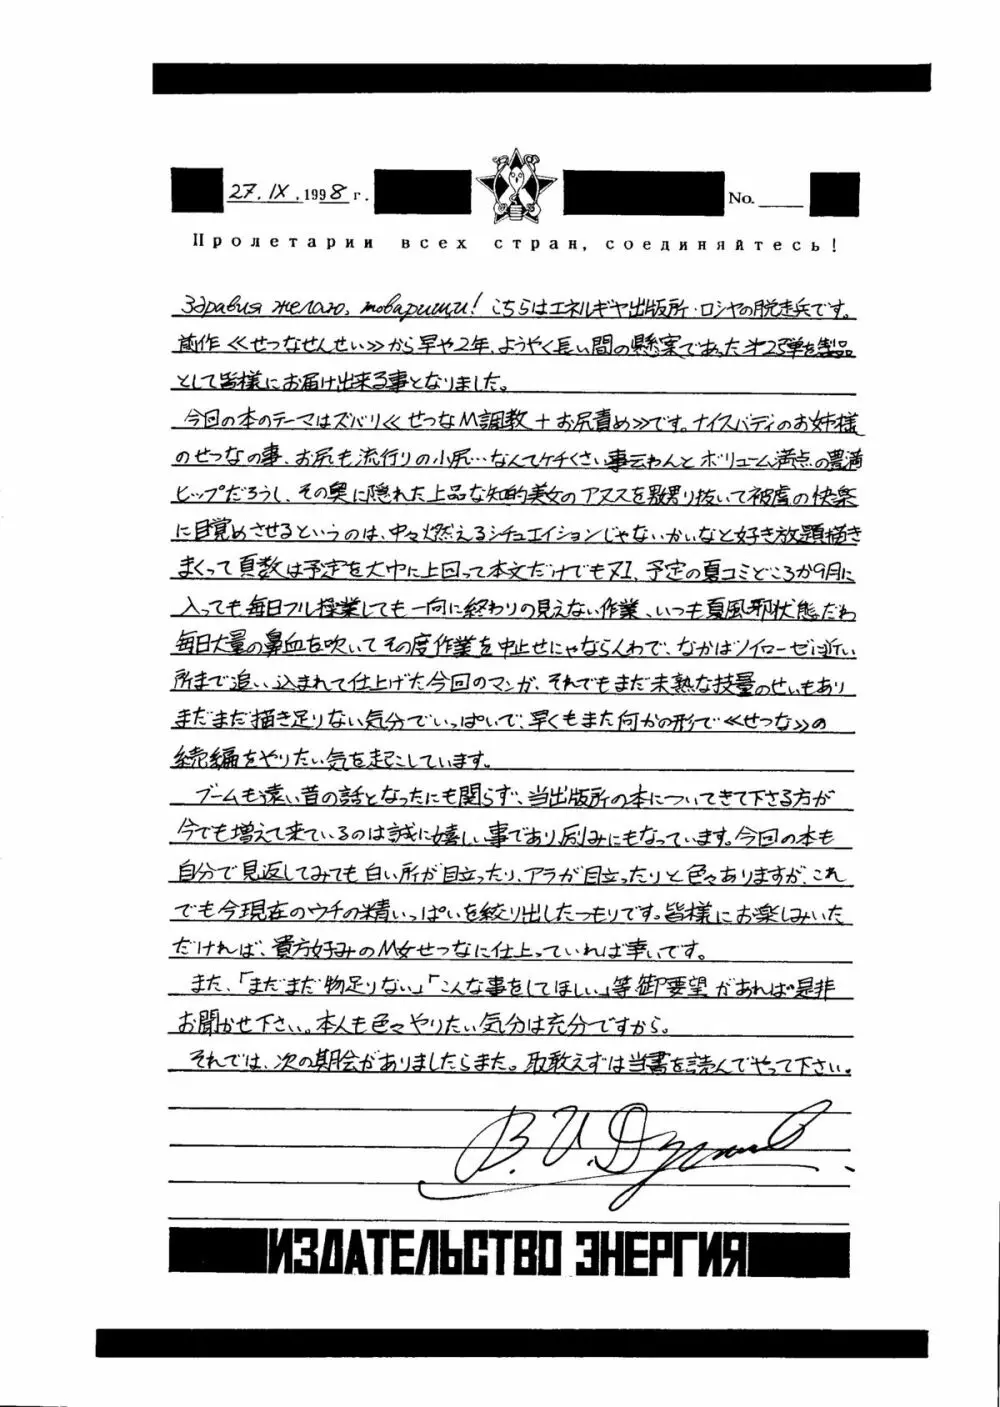 27.IX.1998г. No.
Пролетарии всех стран, соединяйтесь!
Здравия желаю, товарищи! こちらはエネルギヤ出版所・ロシヤの脱走兵です。
前作≪せつなせんせい≫から早や2年、ようやく長い間の懸案であった第2弾を製品
として皆様にお届け出来る事となりました。
今回の本のテーマはズバリ≪せつなM調教+お尻責め≫です。ナイスバディのお姉様
のせつなの事、お尻も流行りの小尻…なんてケチくさい事云わんとボリューム満点の豊満
ヒップだろうし、その奥に隠れた上品な知的美女のアヌスを嬲り抜いて被虐の快楽
に目覚めさせるというのは、中々燃えるシチュエイションじゃないかいなと好き放題描き
まくって頁数は予定を大巾に上回って本文だけでも、予定の夏コミどころか9月に
入っても毎日フル操業しても一向に終わりの見えない作業、いつも夏風邪状態だわ
毎日大量の鼻血を吹いてその度作業を中止せにゃならんわで、なかばノイローゼに近い
所まで追い込まれて仕上げた今回のマンガ、それでもまだ未熟な技量のせいもあり
まだまだ描き足りない気分でいっぱいで、早くもまた何かの形で≪せつな≫の
続編をやりたい気を起こしています。
ブームも遠い昔の話となったにも関らず、当出版所の本についてきて下さる方が
今でも増えて来ているのは誠に嬉しい事であり励みにもなっています。今回の本も
自分で見返してみても白い所が目立ったり、アラが目立ったりと色々ありますが、これ
でも今現在のウチの精いっぱいを絞り出したつもりです。皆様にお楽しみいた
だければ、貴方好みのM女せつなに仕上っていれば幸いです。
また、「まだまだ物足りない」「こんな事をしてほしい」等御要望があれば是非
お聞かせ下さい。本人も色々やりたい気分は充分ですから。
それでは、次の期会がありましたらまた。取敢えずは当書を読んでやって下さい。
ИЗДАТЕЛЬСТВО ЭНЕРГИЯ